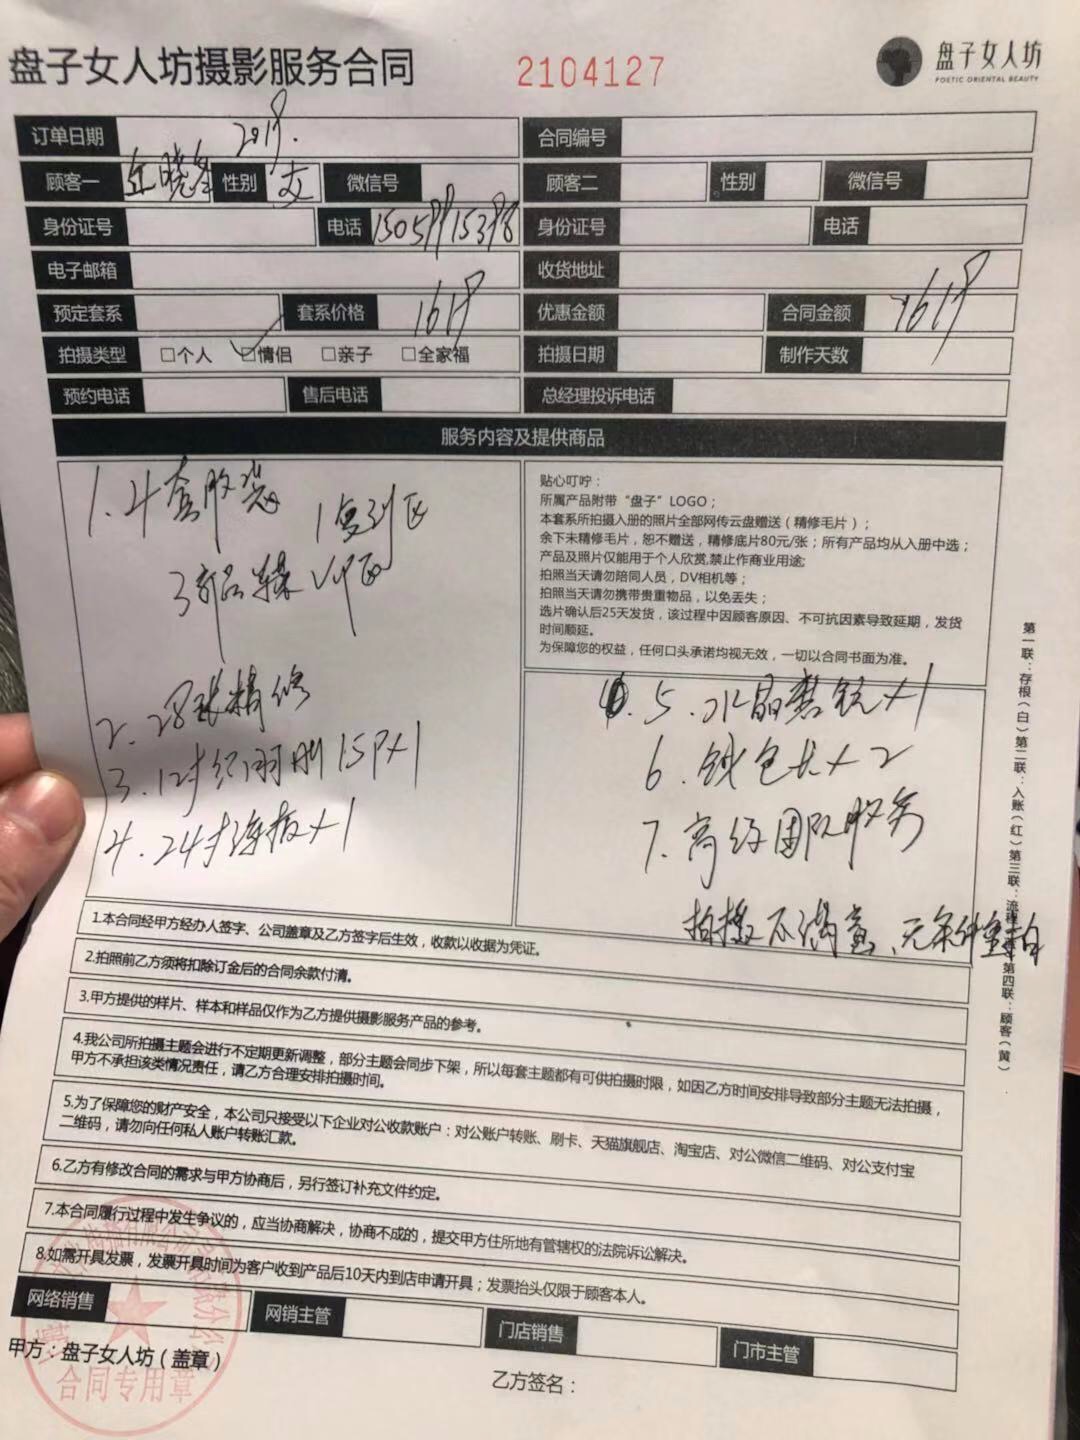 盘子女人坊摄影服务合同
2104127
盘子女人坊
POETIC ORIENTAL BEAUTY
订单日期 2019. 合同编号
顾客一 性别 女 微信号 顾客二 性别 微信号
身份证号 电话 身份证号 电话
电子邮箱 收货地址
预定套系 套系价格 1619 优惠金额 合同金额 1619
拍摄类型 □个人 ☑情侣 □亲子 □全家福 拍摄日期 制作天数
预约电话 售后电话 总经理投诉电话
服务内容及提供商品
1.4套服装
1复刻区
3 VIP区
2.28张精修
3.12寸 册15P×1
4.24寸 板×1
贴心叮咛：
所属产品附带“盘子”LOGO；
本套系所拍摄入册的照片全部网传云盘赠送（精修毛片）；
余下未精修毛片，恕不赠送，精修底片80元/张；所有产品均从入册中选；
产品及照片仅能用于个人欣赏,禁止作商业用途;
拍照当天请勿陪同人员，DV相机等；
拍照当天请勿携带贵重物品，以免丢失；
选片确认后25天发货，该过程中因顾客原因、不可抗因素导致延期，发货
时间顺延。
为保障您的权益，任何口头承诺均视无效，一切以合同书面为准。
5.水晶 ×1
6.钱包卡×2
7.高级团队服务
拍摄不满意、无条件重拍
第一联：存根（白）第二联：入账（红）第三联：流程 第四联：顾客（黄）
1.本合同经甲方经办人签字、公司盖章及乙方签字后生效，收款以收据为凭证。
2.拍照前乙方须将扣除订金后的合同余款付清。
3.甲方提供的样片、样本和样品仅作为乙方提供摄影服务产品的参考。
4.我公司所拍摄主题会进行不定期更新调整，部分主题会同步下架，所以每套主题都有可供拍摄时限，如因乙方时间安排导致部分主题无法拍摄，
甲方不承担该类情况责任，请乙方合理安排拍摄时间。
5.为了保障您的财产安全，本公司只接受以下企业对公收款账户：对公账户转账、刷卡、天猫旗舰店、淘宝店、对公微信二维码、对公支付宝
二维码，请勿向任何私人账户转账汇款。
6.乙方有修改合同的需求与甲方协商后，另行签订补充文件约定。
7.本合同履行过程中发生争议的，应当协商解决，协商不成的，提交甲方住所地有管辖权的法院诉讼解决。
8.如需开具发票，发票开具时间为客户收到产品后10天内到店申请开具；发票抬头仅限于顾客本人。
网络销售 网销主管 门店销售 门市主管
甲方：盘子女人坊（盖章）
合同专用章
乙方签名：